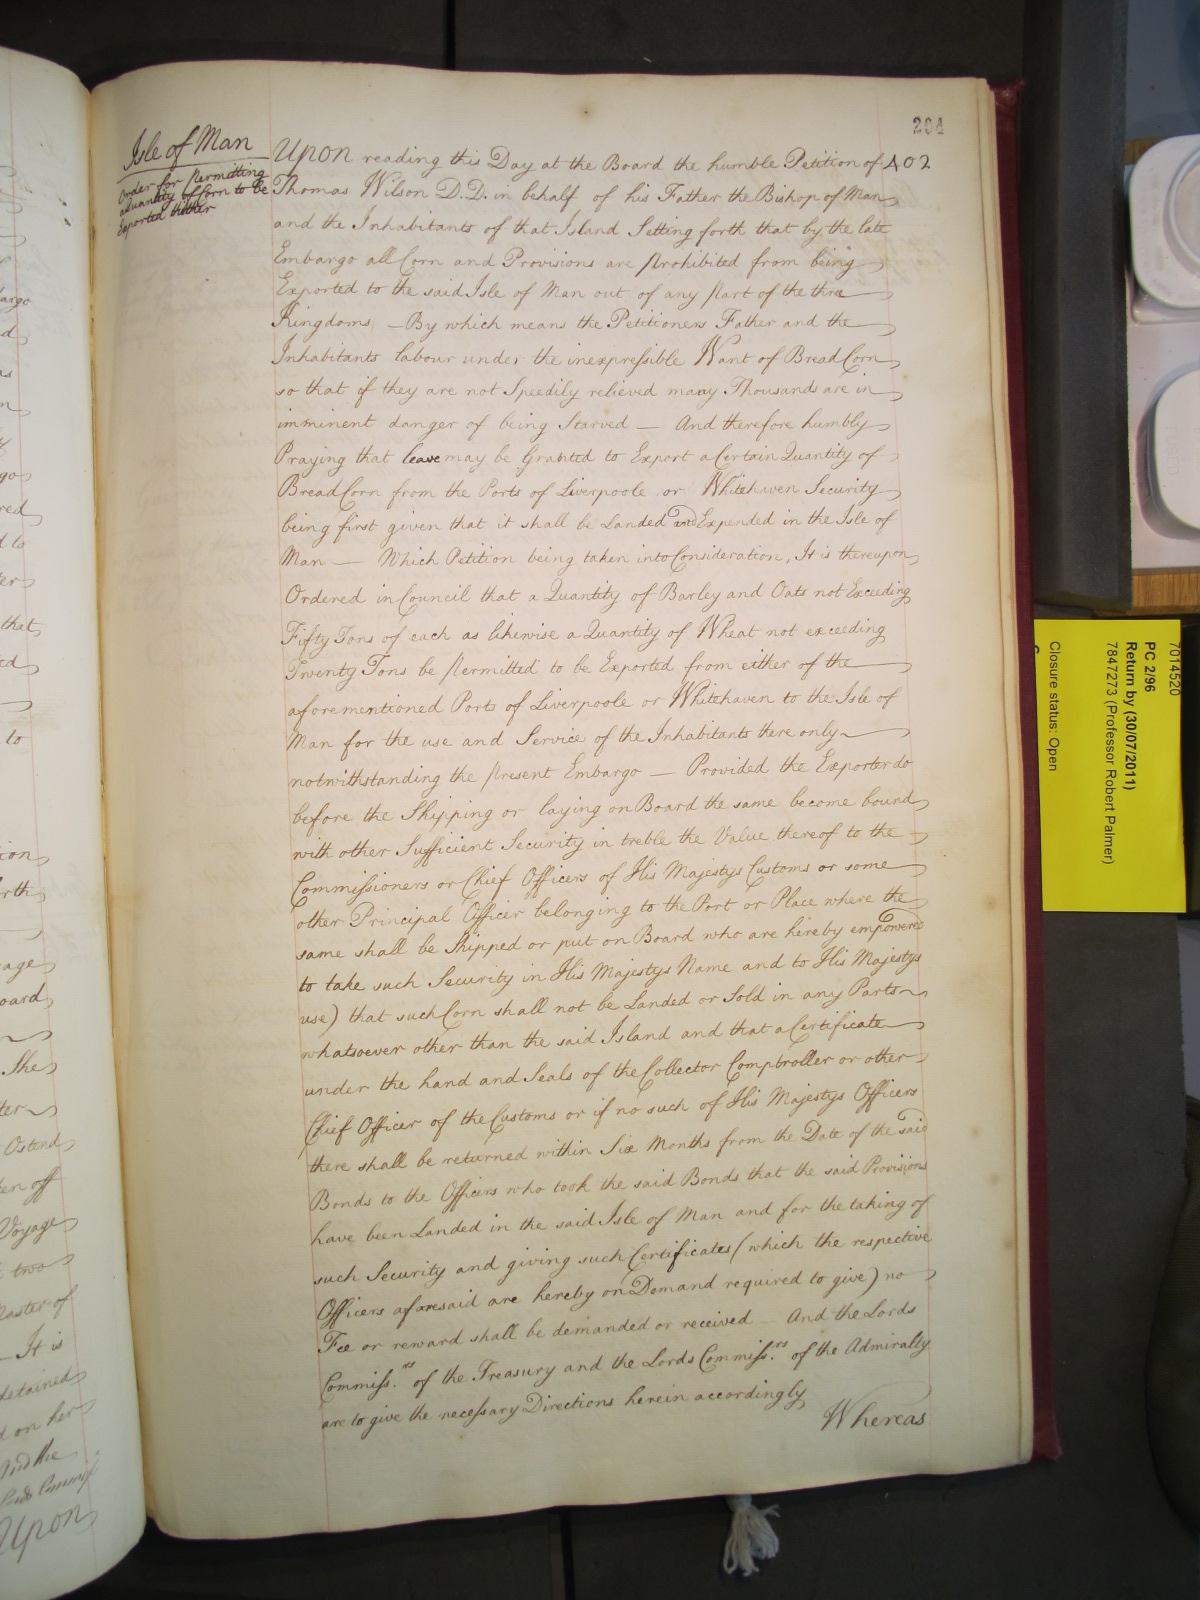 204
402
Isle of Man
Order for Permitting
a Quantity of Corn to be
Exported thither
Upon reading this Day at the Board the humble Petition of
Thomas Wilson D.D. in behalf of his Father the Bishop of Man
and the Inhabitants of that Island Setting forth that by the late
Embargo all Corn and Provisions are prohibited from being
Exported to the said Isle of Man out of any part of the three
Kingdoms, — By which means the Petitioners Father and the
Inhabitants labour under the inexpressible Want of Bread Corn
so that if they are not Speedily relieved many Thousands are in
imminent danger of being Starved — And therefore humbly
Praying that leave may be Granted to Export a Certain Quantity of
Bread Corn from the Ports of Liverpoole or Whitehaven Security
being first given that it shall be Landed and Expended in the Isle of
Man — Which Petition being taken into Consideration, It is thereupon
Ordered in Council that a Quantity of Barley and Oats not Exceeding
Fifty Tons of each as likewise a Quantity of Wheat not exceeding
Twenty Tons be permitted to be Exported from either of the
aforementioned Ports of Liverpoole or Whitehaven to the Isle of
Man for the use and Service of the Inhabitants there only
notwithstanding the present Embargo — Provided the Exporter do
before the Shipping or laying on Board the same become bound
with other Sufficient Security in treble the Value thereof to the
Commissioners or Chief Officers of His Majestys Customs or some
other Principal Officer belonging to the Port or Place where the
same shall be Shipped or put on Board who are hereby empowered
to take such Security in His Majestys Name and to His Majestys
use) that such Corn shall not be Landed or Sold in any Parts
whatsoever other than the said Island and that a Certificate
under the hand and Seals of the Collector Comptroller or other
Chief Officer of the Customs or if no such of His Majestys Officers
there shall be returned within Six Months from the Date of the said
Bonds to the Officers who took the said Bonds that the said Provisions
have been Landed in the said Isle of Man and for the taking of
such Security and giving such Certificates (which the respective
Officers aforesaid are hereby on Demand required to give) no
Fee or reward shall be demanded or received — And the Lords
Commiss.rs of the Treasury and the Lords Commiss.rs of the Admiralty
are to give the necessary Directions herein accordingly
Whereas
argo
d
as
n
go
red
d to
ter
that
ed
to
ion
rth
age
oard
She
ter
Ostend
en off
Voyage
two
Master of
— It is
detained
d on her
And the
Upon
7014520
PC 2/96
Return by (30/07/2011)
7847273 (Professor Robert Palmer)
Closure status: Open